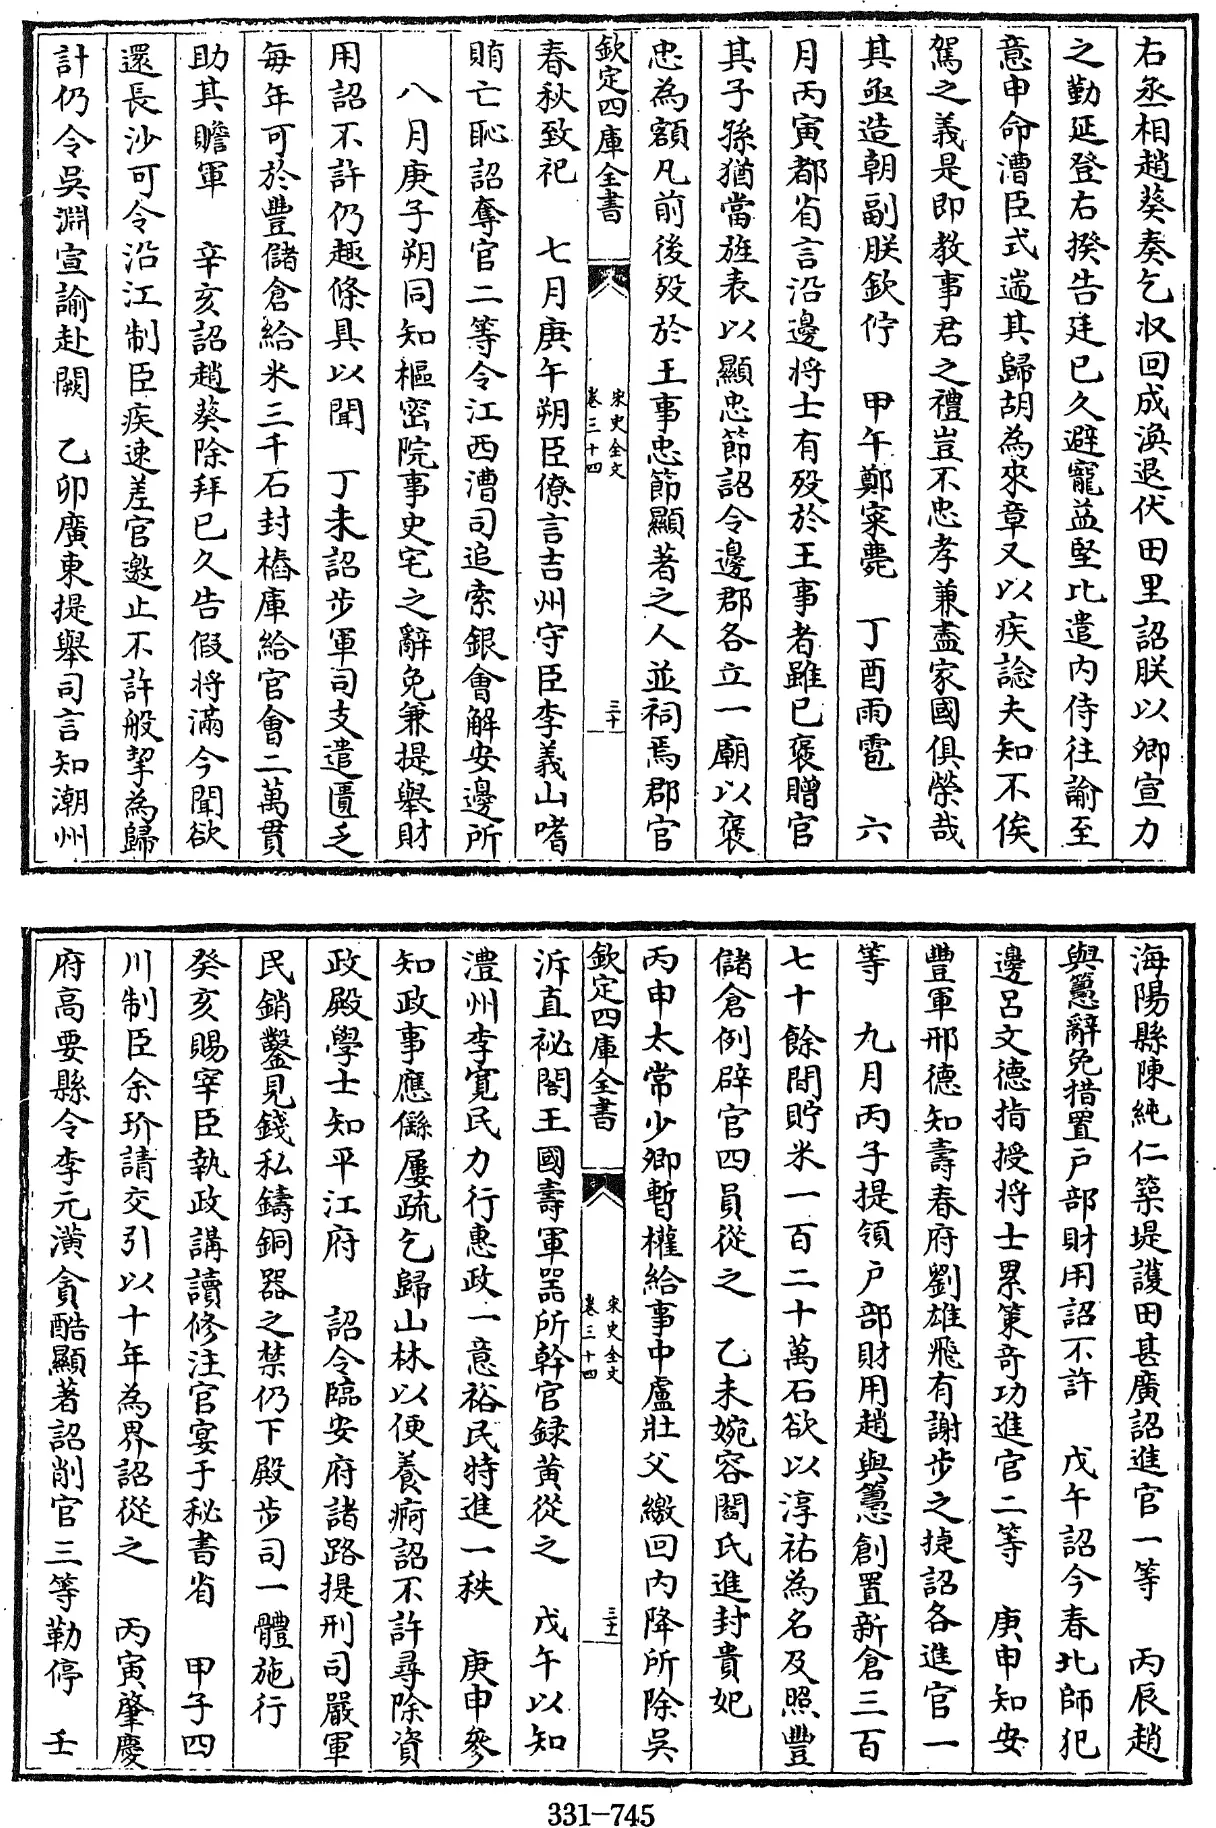 右丞相趙葵奏乞収回成渙退伏田里詔朕以卿宣力
之勤延登右揆告廷已久避寵益堅比遣内侍往諭至
意申命漕臣式遄其歸胡為來章又以疾諗夫知不俟
駕之義是即教事君之禮豈不忠孝兼盡家國俱榮哉
其亟造朝副朕欽佇　甲午鄭寀薨　丁酉雨雹　六
月丙寅都省言沿邊將士有歿於王事者雖已褒贈官
其子孫猶當旌表以顯忠節詔令邊郡各立一廟以褒
忠為額凡前後歿於王事忠節顯著之人並祠焉郡官
欽定四庫全書
宋史全文
卷三十四
三十
春秋致祀　七月庚午朔臣僚言吉州守臣李義山嗜
賄亡恥詔奪官二等令江西漕司追索銀會解安邊所
八月庚子朔同知樞密院事史宅之辭免兼提舉財
用詔不許仍趣條具以聞　丁未詔步軍司支遣匱乏
每年可於豐儲倉給米三千石封樁庫給官會二萬貫
助其贍軍　辛亥詔趙葵除拜已久告假將滿今聞欲
還長沙可令沿江制臣疾速差官邀止不許般挈為歸
計仍令吳淵宣諭赴闕　乙卯廣東提舉司言知潮州
海陽縣陳純仁築堤護田甚廣詔進官一等　丙辰趙
與𥲅辭免措置戸部財用詔不許　戊午詔今春北師犯
邊呂文德指授將士累策奇功進官二等　庚申知安
豐軍邢德知壽春府劉雄飛有謝步之捷詔各進官一
等　九月丙子提領戸部財用趙與𥲅創置新倉三百
七十餘間貯米一百二十萬石欲以淳祐為名及照豐
儲倉例辟官四員從之　乙未婉容閻氏進封貴妃
丙申太常少卿暫權給事中盧壯父繳回内降所除吳
欽定四庫全書
宋史全文
卷三十四
三十一
泝直祕閣王國壽軍器所幹官録黄從之　戊午以知
澧州李寛民力行惠政一意裕民特進一秩　庚申參
知政事應𦈛屢疏乞歸山林以便養痾詔不許尋除資
政殿學士知平江府　詔令臨安府諸路提刑司嚴軍
民銷鑿見錢私鑄銅器之禁仍下殿步司一體施行
癸亥賜宰臣執政講讀修注官宴于秘書省　甲子四
川制臣余玠請交引以十年為界詔從之　丙寅肇慶
府高要縣令李元潢貪酷顯著詔削官三等勒停　壬
331-745